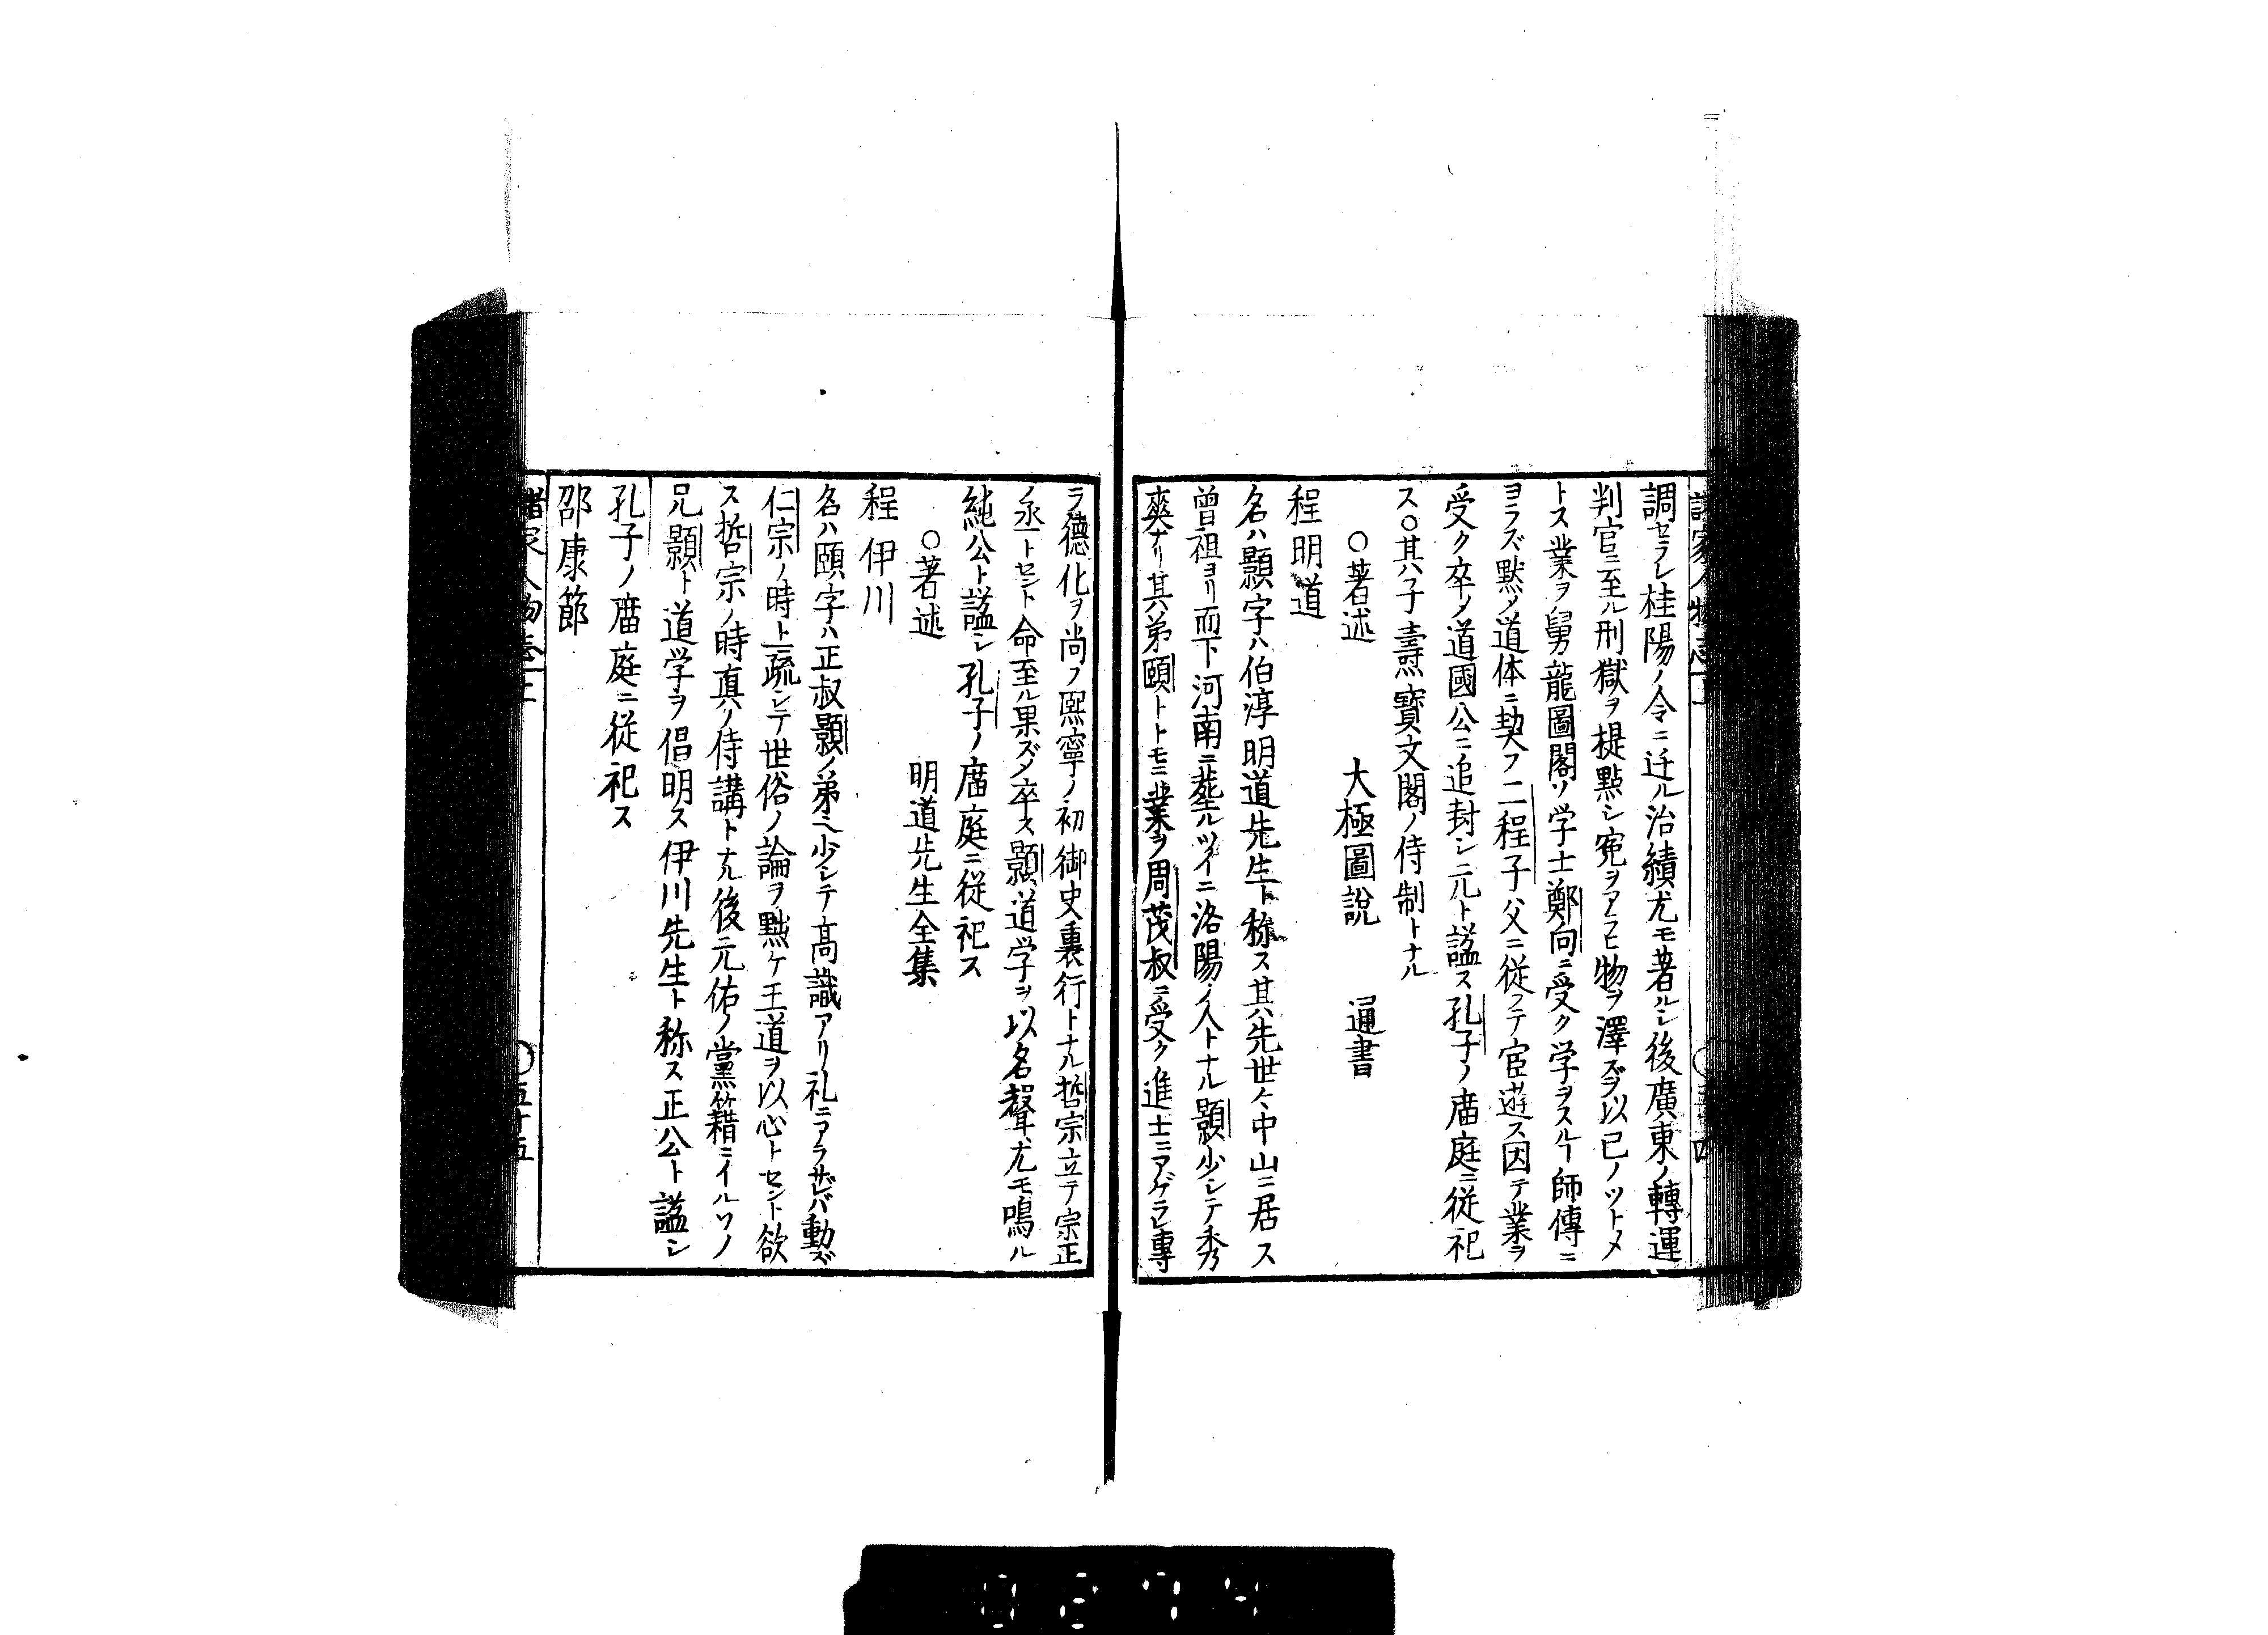 調セラレ桂陽ノ令ニ迁ル治績尤モ著ルシ後廣東ノ轉運
判官ニ至ル刑獄ヲ提點シ寃ヲアラヒ物ヲ澤ズヲ以已ノツトメ
トス業ヲ舅龍圖閣ソ学士鄭向ニ受ク学ヲスルヿ師傳ニ
ヨラズ默ノ道体ニ契フ二程子父ニ従フテ宦遊ス因テ業ヲ
受ク卒ノ道國公ニ追封シ元ト謚ス孔子ノ庿庭ニ従祀
ス○其子壽燾寳文閣ノ侍制トナル
○著述　大極圖說　通書
程明道
名ハ顥字ハ伯淳明道先生ト称ス其先世々中山ニ居ス
曽祖ヨリ而下河南ニ葬ルツイニ洛陽ノ人トナル顥少シテ秀
爽ナリ其弟頤トトモニ業ヲ周茂叔ニ受ク進士ニアゲラレ專
ラ德化ヲ尚フ熙寧ノ初御史裏行トナル哲宗立テ宗正
ノ丞トセント命至ル果ズノ卒ス顥道学ヲ以名聲尤モ鳴ル
純公ト謚シ孔子ノ庿庭ニ従祀ス
○著述　明道先生全集
程伊川
名ハ頤字ハ正叔顥ノ弟也少シテ髙識アリ礼ニアラザレバ動ズ
仁宗ノ時上疏シテ世俗ノ論ヲ黜ケ王道ヲ以心トセント欲
ス哲宗ノ時真ノ侍講トナル後元佑ノ黨籍ニイルソノ
兄顥ト道学ヲ倡明ス伊川先生ト称ス正公ト謚シ
孔子ノ庿庭ニ従祀ス
邵康節
諸家人物志上
○五十五
0274